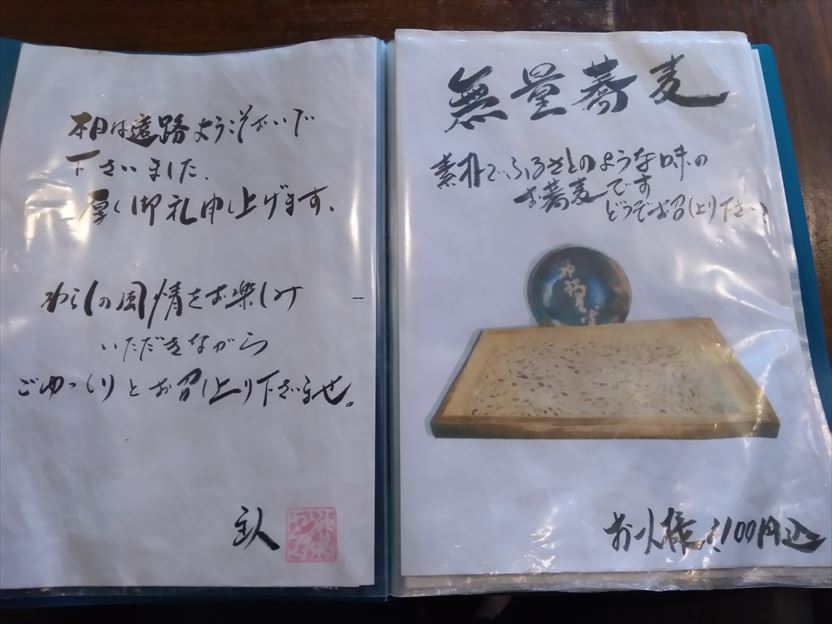 本日は遠路ようこそおいで
下さいました.
厚く御礼申し上げます.
わらしの風情をお楽しみ
いただきながら
ごゆっくりとお召し上り下さいませ。
主人
無量蕎麦
素朴でふるさとのような味の
お蕎麦です
どうぞお召し上り下さい
お一人様 1,100円込